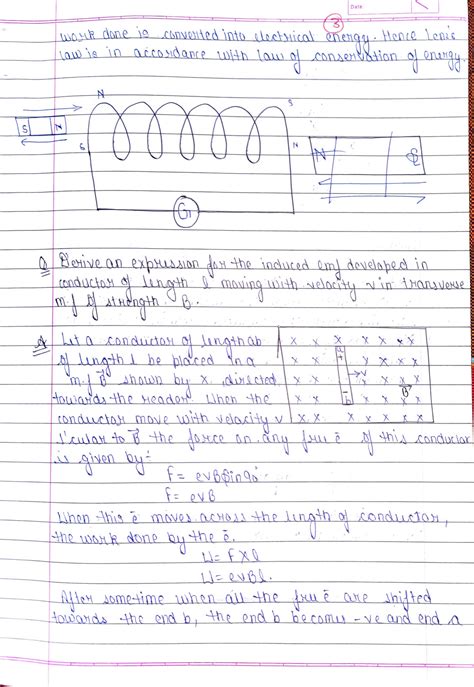 Date
3
work done is converted into electrical energy. Hence lenz
law is in accordance with law of conservation of energy.
N S
S N
S N
N S
G
Q Derive an expression for the induced emf developed in
conductor of length l moving with velocity v in transverse
m.f of strength B.
A Let a conductor of length ab
of length l be placed in a
m.f B⃗ shown by x, directed
towards the reader. When the
conductor move with velocity v
l'cular to B⃗ the force on any free ē of this conductor
is given by:-
x x x x x x x
x x x x x x
x x → v x x x
x x B⃗
x x x x x x x x
F = evB Sin90°
F = evB
When this ē moves across the length of conductor,
the work done by the ē.
W = F x l
W = evBl.
After some time when all the free ē are shifted
towards the end b, the end b becomes -ve and end a